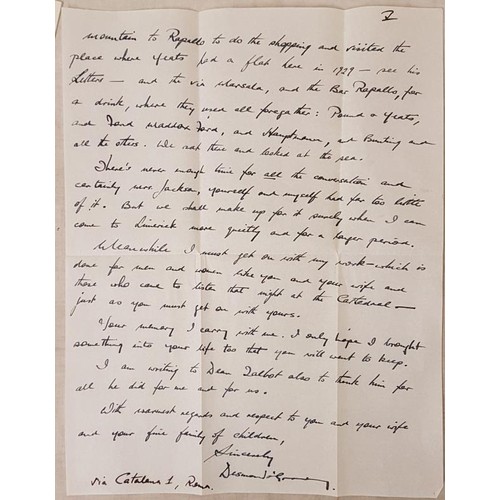 V
mountain to Rapallo to do the shopping and visited the
place where Yeats had a flat here in 1929 — see his
Letters — and the via Marsala, and the Bar Rapallo, for
a drink, where they used all foregather: Pound & Yeats,
and Ford Maddox Ford, and Hauptmann, and Bunting and
all the others. We sat there and looked at the sea.
There's never enough time for all the conversation and
certainly Jackson, yourself and myself had far too little
of it. But we shall make up for it surely when I can
come to Limerick more quietly and for a longer period.
Meanwhile I must get on with my work — which is
done for men and women like you and your wife and
those who came to listen that night at the Cathedral —
just as you must get on with yours.
Your memory I carry with me. I only hope I brought
something into your life too that you will want to keep.
I am writing to Dean Talbot also to thank him for
all he did for me and for us.
With warmest regards and respect to you and your wife
and your fine family of children,
Sincerely
Desmond O'Grady
via Catalana 1, Roma.